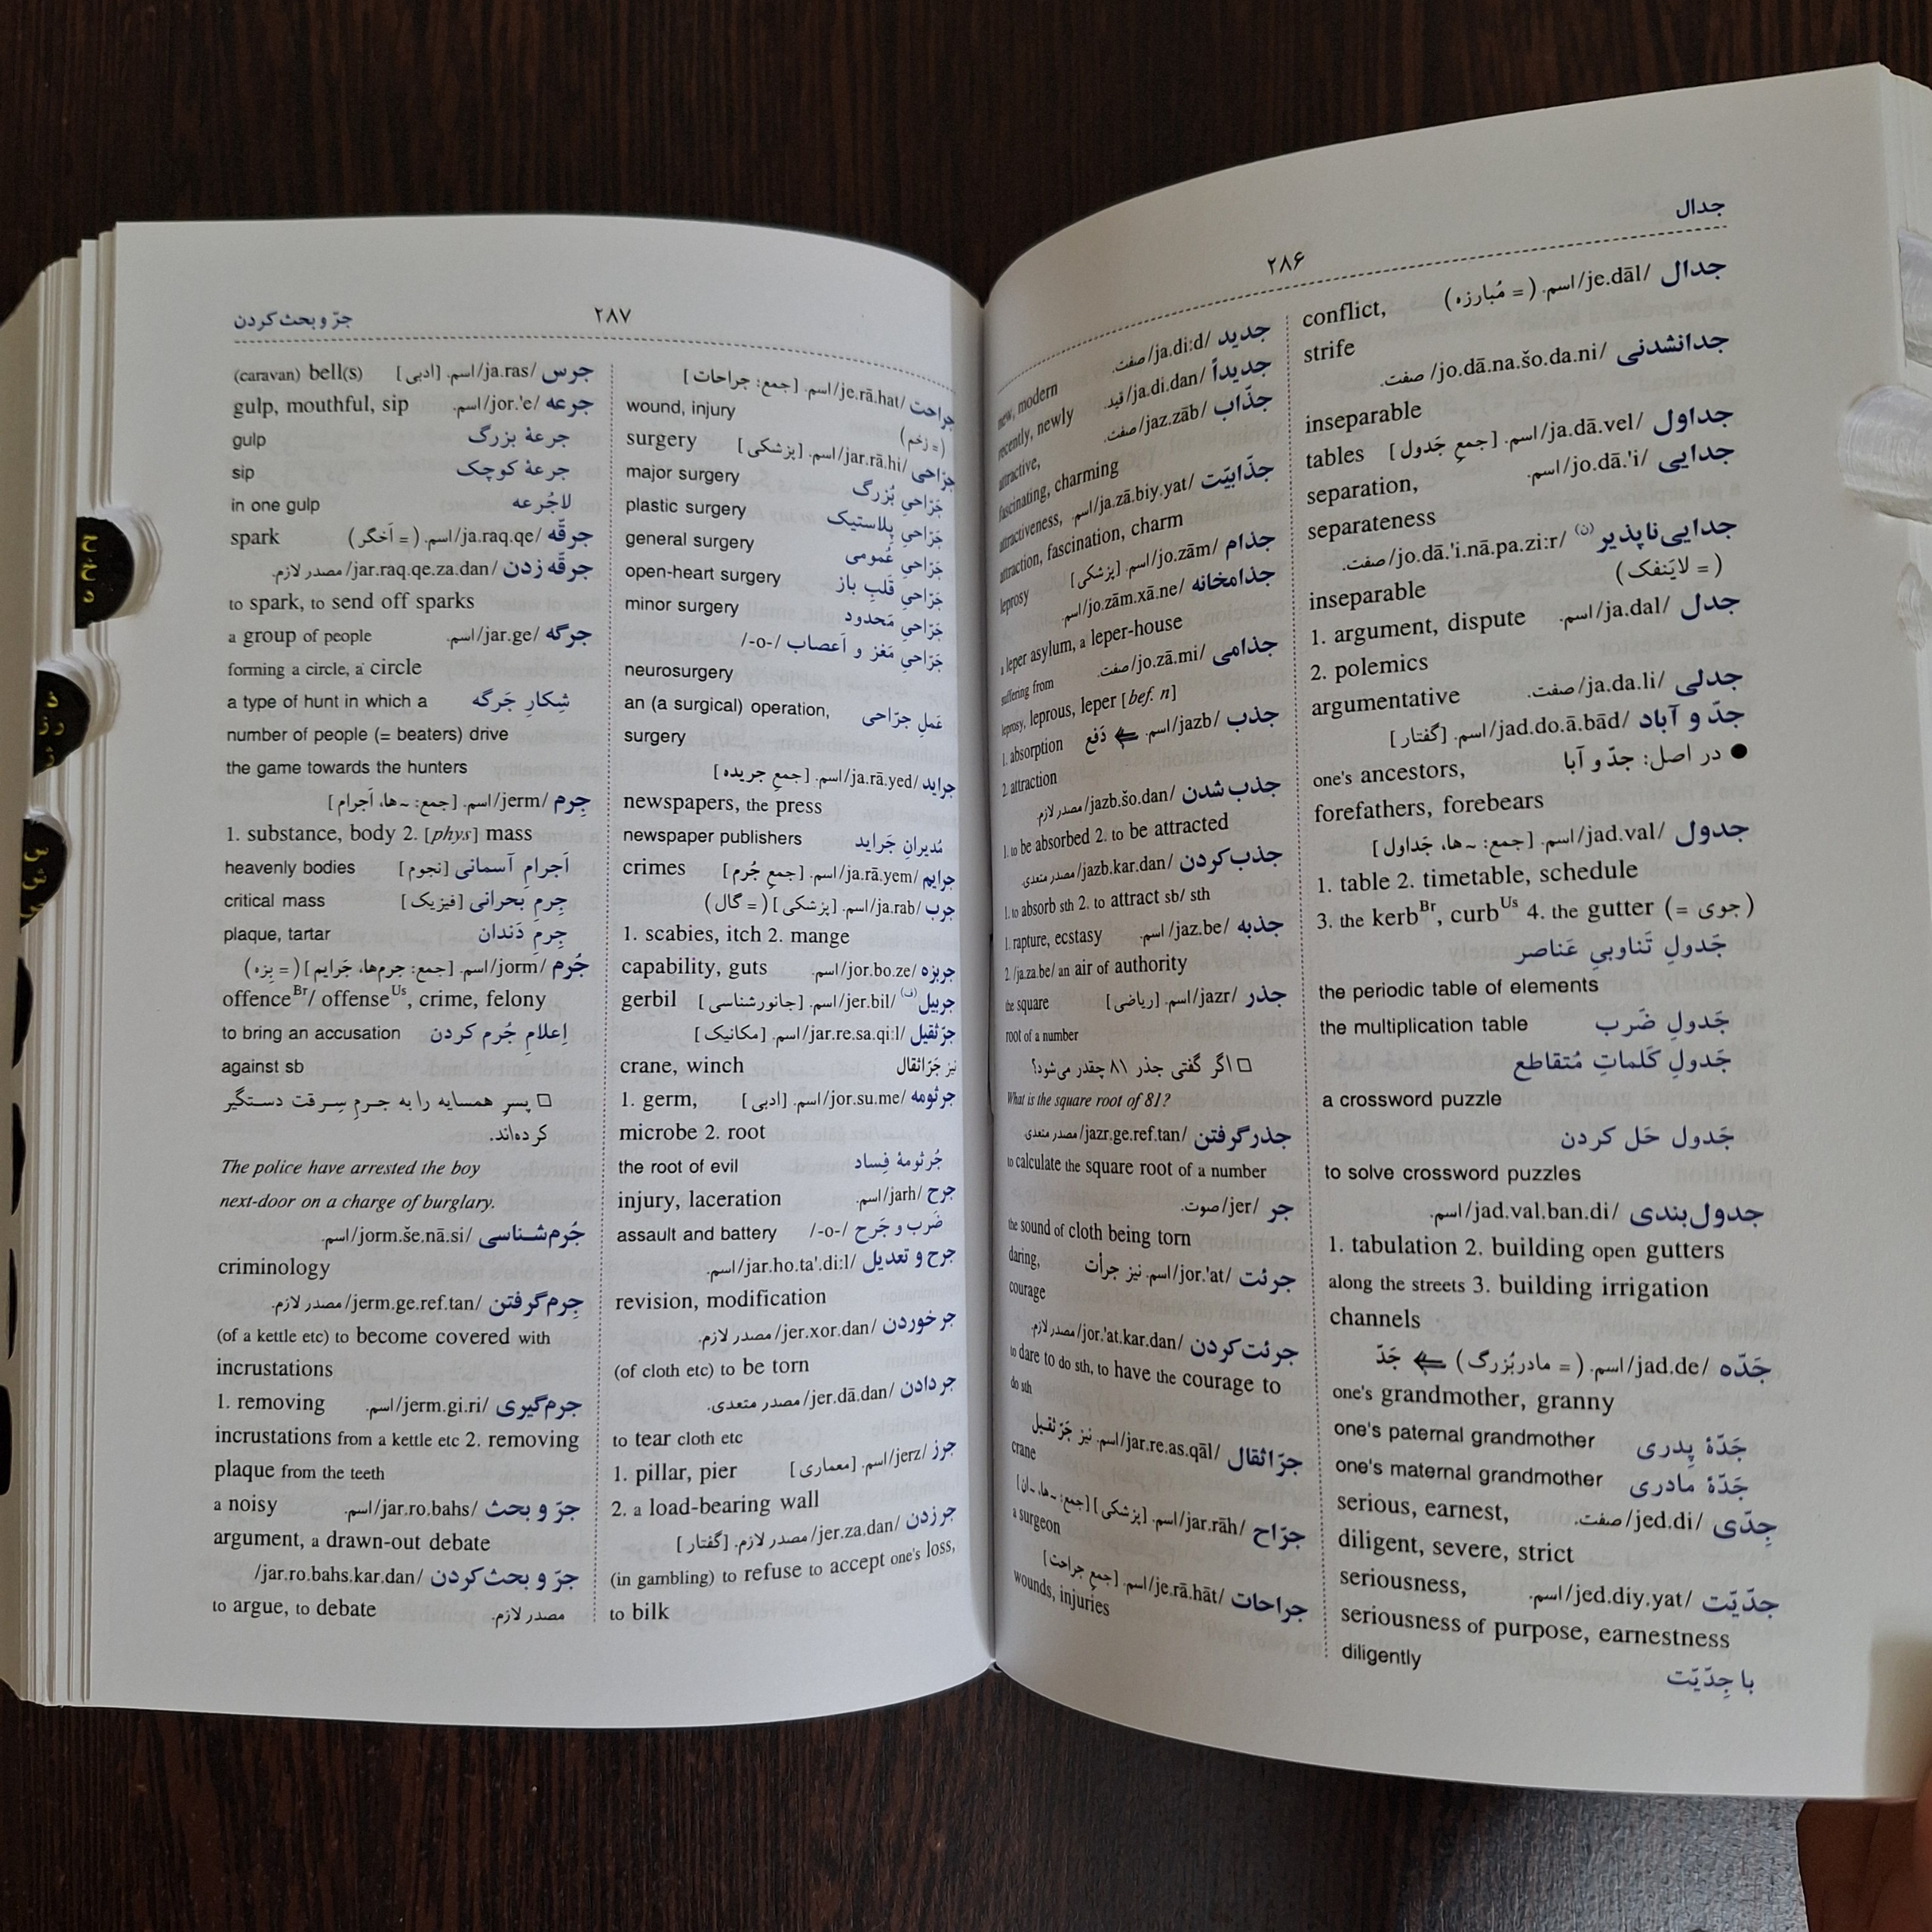 جدال
۲۸۶
جدال /je.dāl/اسم. (= مُبارزه) conflict,
strife
جدانشدنی /jo.dā.na.šo.da.ni/ صفت.
inseparable
جداول /ja.dā.vel/اسم. [جمعِ جَدول] tables
جدایی /jo.dā.'i/اسم. separation,
separateness
جدایی‌ناپذیر (ن) /jo.dā.'i.nā.pa.zi:r/صفت.
(= لایَنفک)
inseparable
جدل /ja.dal/اسم. 1. argument, dispute
2. polemics
جدلی /ja.da.li/صفت. argumentative
جدّ و آباد /jad.do.ā.bād/اسم. [گفتار]
● در اصل: جدّ و آبا one's ancestors,
forefathers, forebears
جدول /jad.val/اسم. [جمع: ـ‌ها، جَداول]
1. table 2. timetable, schedule
3. the kerbBr, curbUs 4. the gutter (= جوی)
جَدولِ تَناوبیِ عَناصر
the periodic table of elements
جَدولِ ضَرب the multiplication table
جَدولِ کَلماتِ مُتقاطع
a crossword puzzle
جَدول حَل کردن
to solve crossword puzzles
جدول‌بندی /jad.val.ban.di/اسم.
1. tabulation 2. building open gutters
along the streets 3. building irrigation
channels
جَدّه /jad.de/اسم. (= مادربُزرگ) ⇐ جَدّ
one's grandmother, granny
جَدّهٔ پِدری one's paternal grandmother
جَدّهٔ مادری one's maternal grandmother
جِدّی /jed.di/صفت. serious, earnest,
diligent, severe, strict
جدّیّت /jed.diy.yat/اسم. seriousness,
seriousness of purpose, earnestness
با جِدّیّت diligently
جدید /ja.di:d/صفت. new, modern
جدیداً /ja.di.dan/قید. recently, newly
جذّاب /jaz.zāb/صفت. attractive,
fascinating, charming
جذّابیّت /ja.zā.biy.yat/اسم. attractiveness,
attraction, fascination, charm
جذام /jo.zām/اسم. [پزشکی] leprosy
جذامخانه /jo.zām.xā.ne/اسم.
a leper asylum, a leper-house
جذامی /jo.zā.mi/صفت. suffering from
leprosy, leprous, leper [bef. n]
جذب /jazb/اسم. ⇐ دَفع 1. absorption
2. attraction
جذب شدن /jazb.šo.dan/مصدر لازم.
1. to be absorbed 2. to be attracted
جذب‌کردن /jazb.kar.dan/مصدر متعدی.
1. to absorb sth 2. to attract sb/ sth
جذبه /jaz.be/اسم. 1. rapture, ecstasy
2. /ja.za.be/ an air of authority
جذر /jazr/اسم. [ریاضی] the square
root of a number
□ اگر گفتی جذر ۸۱ چقدر می‌شود؟
What is the square root of 81?
جذرگرفتن /jazr.ge.ref.tan/مصدر متعدی.
to calculate the square root of a number
جر /jer/صوت.
the sound of cloth being torn
جرئت /jor.'at/اسم. نیز جرأت daring,
courage
جرئت‌کردن /jor.'at.kar.dan/مصدر لازم.
to dare to do sth, to have the courage to
do sth
جرّاثقال /jar.re.as.qāl/اسم. نیز جَرّثقیل
crane
جرّاح /jar.rāh/اسم. [پزشکی] [جمع: ـ‌ها، ـ‌ان]
a surgeon
جراحات /je.rā.hāt/اسم. [جمعِ جراحت]
wounds, injuries
۲۸۷
جرّ و بحث کردن
جراحت /je.rā.hat/اسم. [جمع: جراحات]
(= زخم) wound, injury
جرّاحی /jar.rā.hi/اسم. [پزشکی] surgery
جَرّاحیِ بُزرگ major surgery
جَرّاحیِ پلاستیک plastic surgery
جَرّاحیِ عُمومی general surgery
جَرّاحیِ قَلبِ باز open-heart surgery
جَرّاحیِ مَحدود minor surgery
جَرّاحیِ مَغز و اَعصاب /-o-/
neurosurgery
عَملِ جرّاحی an (a surgical) operation,
surgery
جراید /ja.rā.yed/اسم. [جمعِ جریده]
newspapers, the press
مُدیرانِ جَراید newspaper publishers
جرایم /ja.rā.yem/اسم. [جمعِ جُرم] crimes
جرب /ja.rab/اسم. [پزشکی] (= گال)
1. scabies, itch 2. mange
جربزه /jor.bo.ze/اسم. capability, guts
جربیل (ف) /jer.bil/اسم. [جانورشناسی] gerbil
جرّثقیل /jar.re.sa.qi:l/اسم. [مکانیک]
نیز جَرّاثقال crane, winch
جرثومه /jor.su.me/اسم. [ادبی] 1. germ,
microbe 2. root
جُرثومهٔ فِساد the root of evil
جرح /jarh/اسم. injury, laceration
ضَرب و جَرح /-o-/ assault and battery
جرح و تعدیل /jar.ho.ta'.di:l/اسم.
revision, modification
جرخوردن /jer.xor.dan/مصدر لازم.
(of cloth etc) to be torn
جردادن /jer.dā.dan/مصدر متعدی.
to tear cloth etc
جرز /jerz/اسم. [معماری] 1. pillar, pier
2. a load-bearing wall
جرزدن /jer.za.dan/مصدر لازم. [گفتار]
(in gambling) to refuse to accept one's loss,
to bilk
جرس /ja.ras/اسم. [ادبی] (caravan) bell(s)
جرعه /jor.'e/اسم. gulp, mouthful, sip
جرعهٔ بزرگ gulp
جرعهٔ کوچک sip
لاجُرعه in one gulp
جرقّه /ja.raq.qe/اسم. (= اَخگر) spark
جرقّه زدن /jar.raq.qe.za.dan/مصدر لازم.
to spark, to send off sparks
جرگه /jar.ge/اسم. a group of people
forming a circle, a circle
شِکارِ جَرگه a type of hunt in which a
number of people (= beaters) drive
the game towards the hunters
جِرم /jerm/اسم. [جمع: ـ‌ها، اَجرام]
1. substance, body 2. [phys] mass
اَجرامِ آسمانی [نجوم] heavenly bodies
جِرمِ بحرانی [فیزیک] critical mass
جِرمِ دَندان plaque, tartar
جُرم /jorm/اسم. [جمع: جرم‌ها، جَرایم] (= بِزه)
offenceBr/ offenseUs, crime, felony
اِعلامِ جُرم کردن to bring an accusation
against sb
□ پسرِ همسایه را به جـرمِ سِـرقت دستـگیر
کرده‌اند.
The police have arrested the boy
next-door on a charge of burglary.
جُرم‌شناسی /jorm.še.nā.si/اسم.
criminology
جِرم‌گرفتن /jerm.ge.ref.tan/مصدر لازم.
(of a kettle etc) to become covered with
incrustations
جرم‌گیری /jerm.gi.ri/اسم. 1. removing
incrustations from a kettle etc 2. removing
plaque from the teeth
جرّ و بحث /jar.ro.bahs/اسم. a noisy
argument, a drawn-out debate
جرّ و بحث‌کردن /jar.ro.bahs.kar.dan/
مصدر لازم. to argue, to debate
ذ
ر ز
ژ